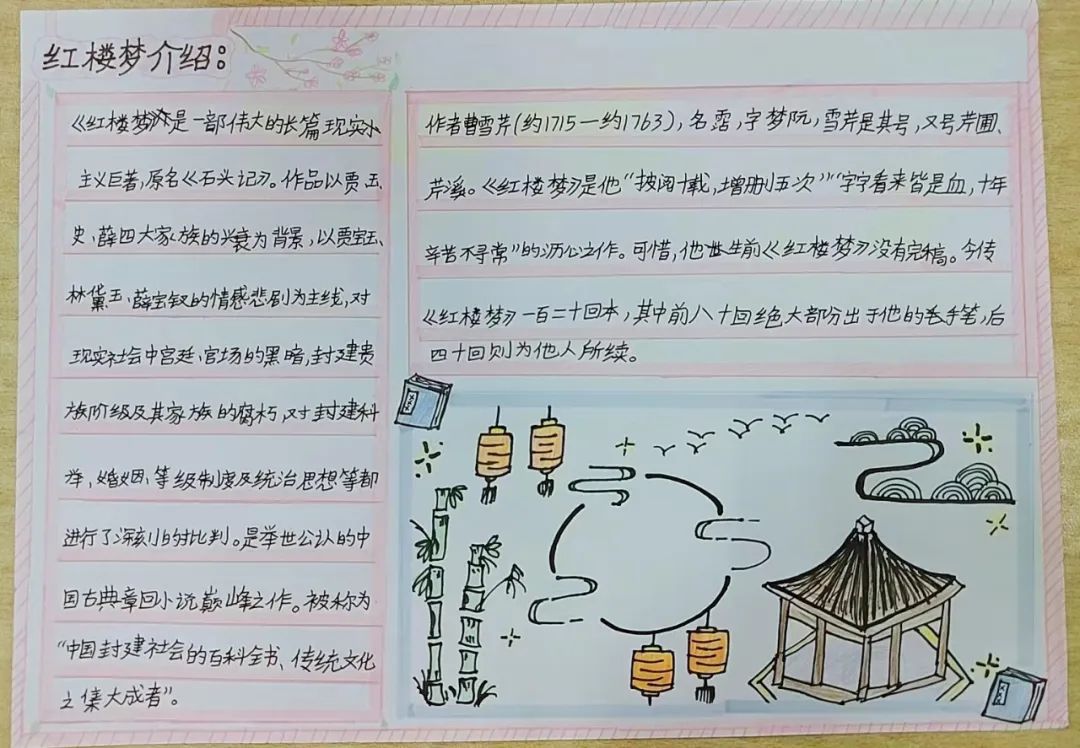 红楼梦介绍:
《红楼梦》是一部伟大的长篇现实
主义巨著,原名《石头记》。作品以贾、王、
史、薛四大家族的兴衰为背景,以贾宝玉、
林黛玉、薛宝钗的情感悲剧为主线,对
现实社会中宫廷、官场的黑暗,封建贵
族阶级及其家族的腐朽,对封建科
举、婚姻、等级制度及统治思想等都
进行了深刻的批判。是举世公认的中
国古典章回小说巅峰之作。被称为
“中国封建社会的百科全书、传统文化
之集大成者”。
作者曹雪芹(约1715—约1763),名霑,字梦阮,雪芹是其号,又号芹圃、
芹溪。《红楼梦》是他“披阅十载,增删五次”“字字看来皆是血,十年
辛苦不寻常”的沥心之作。可惜,他生前《红楼梦》没有完稿。今传
《红楼梦》一百二十回本,其中前八十回绝大部分出于他的手笔,后
四十回则为他人所续。